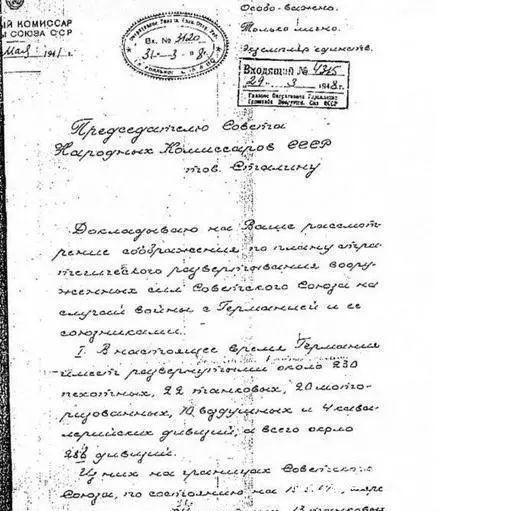 ЫЙ КОМИССАР
Ы СОЮЗА ССР
Мая 1941 г.
Особо важно.
Только лично.
Экземпляр единств.
Вх. № 3120
31-3-8
ВХОДЯЩИЙ № 4315
29. 3 1948 г.
Председателю Совета
Народных Комиссаров СССР
тов. Сталину
Докладываю на Ваше рассмот-
рение соображения по плану стра-
тегического развертывания воору-
женных сил Советского Союза на
случай войны с Германией и ее
союзниками.
I. В настоящее время Германия
имеет развернутыми около 230
пехотных, 22 танковых, 20 мото-
ризованных, 10 воздушных и 4 кава-
лерийских дивизий, а всего около
286 дивизий.
Из них на границах Советского
Союза, по состоянию на 15.5.
13 танковых